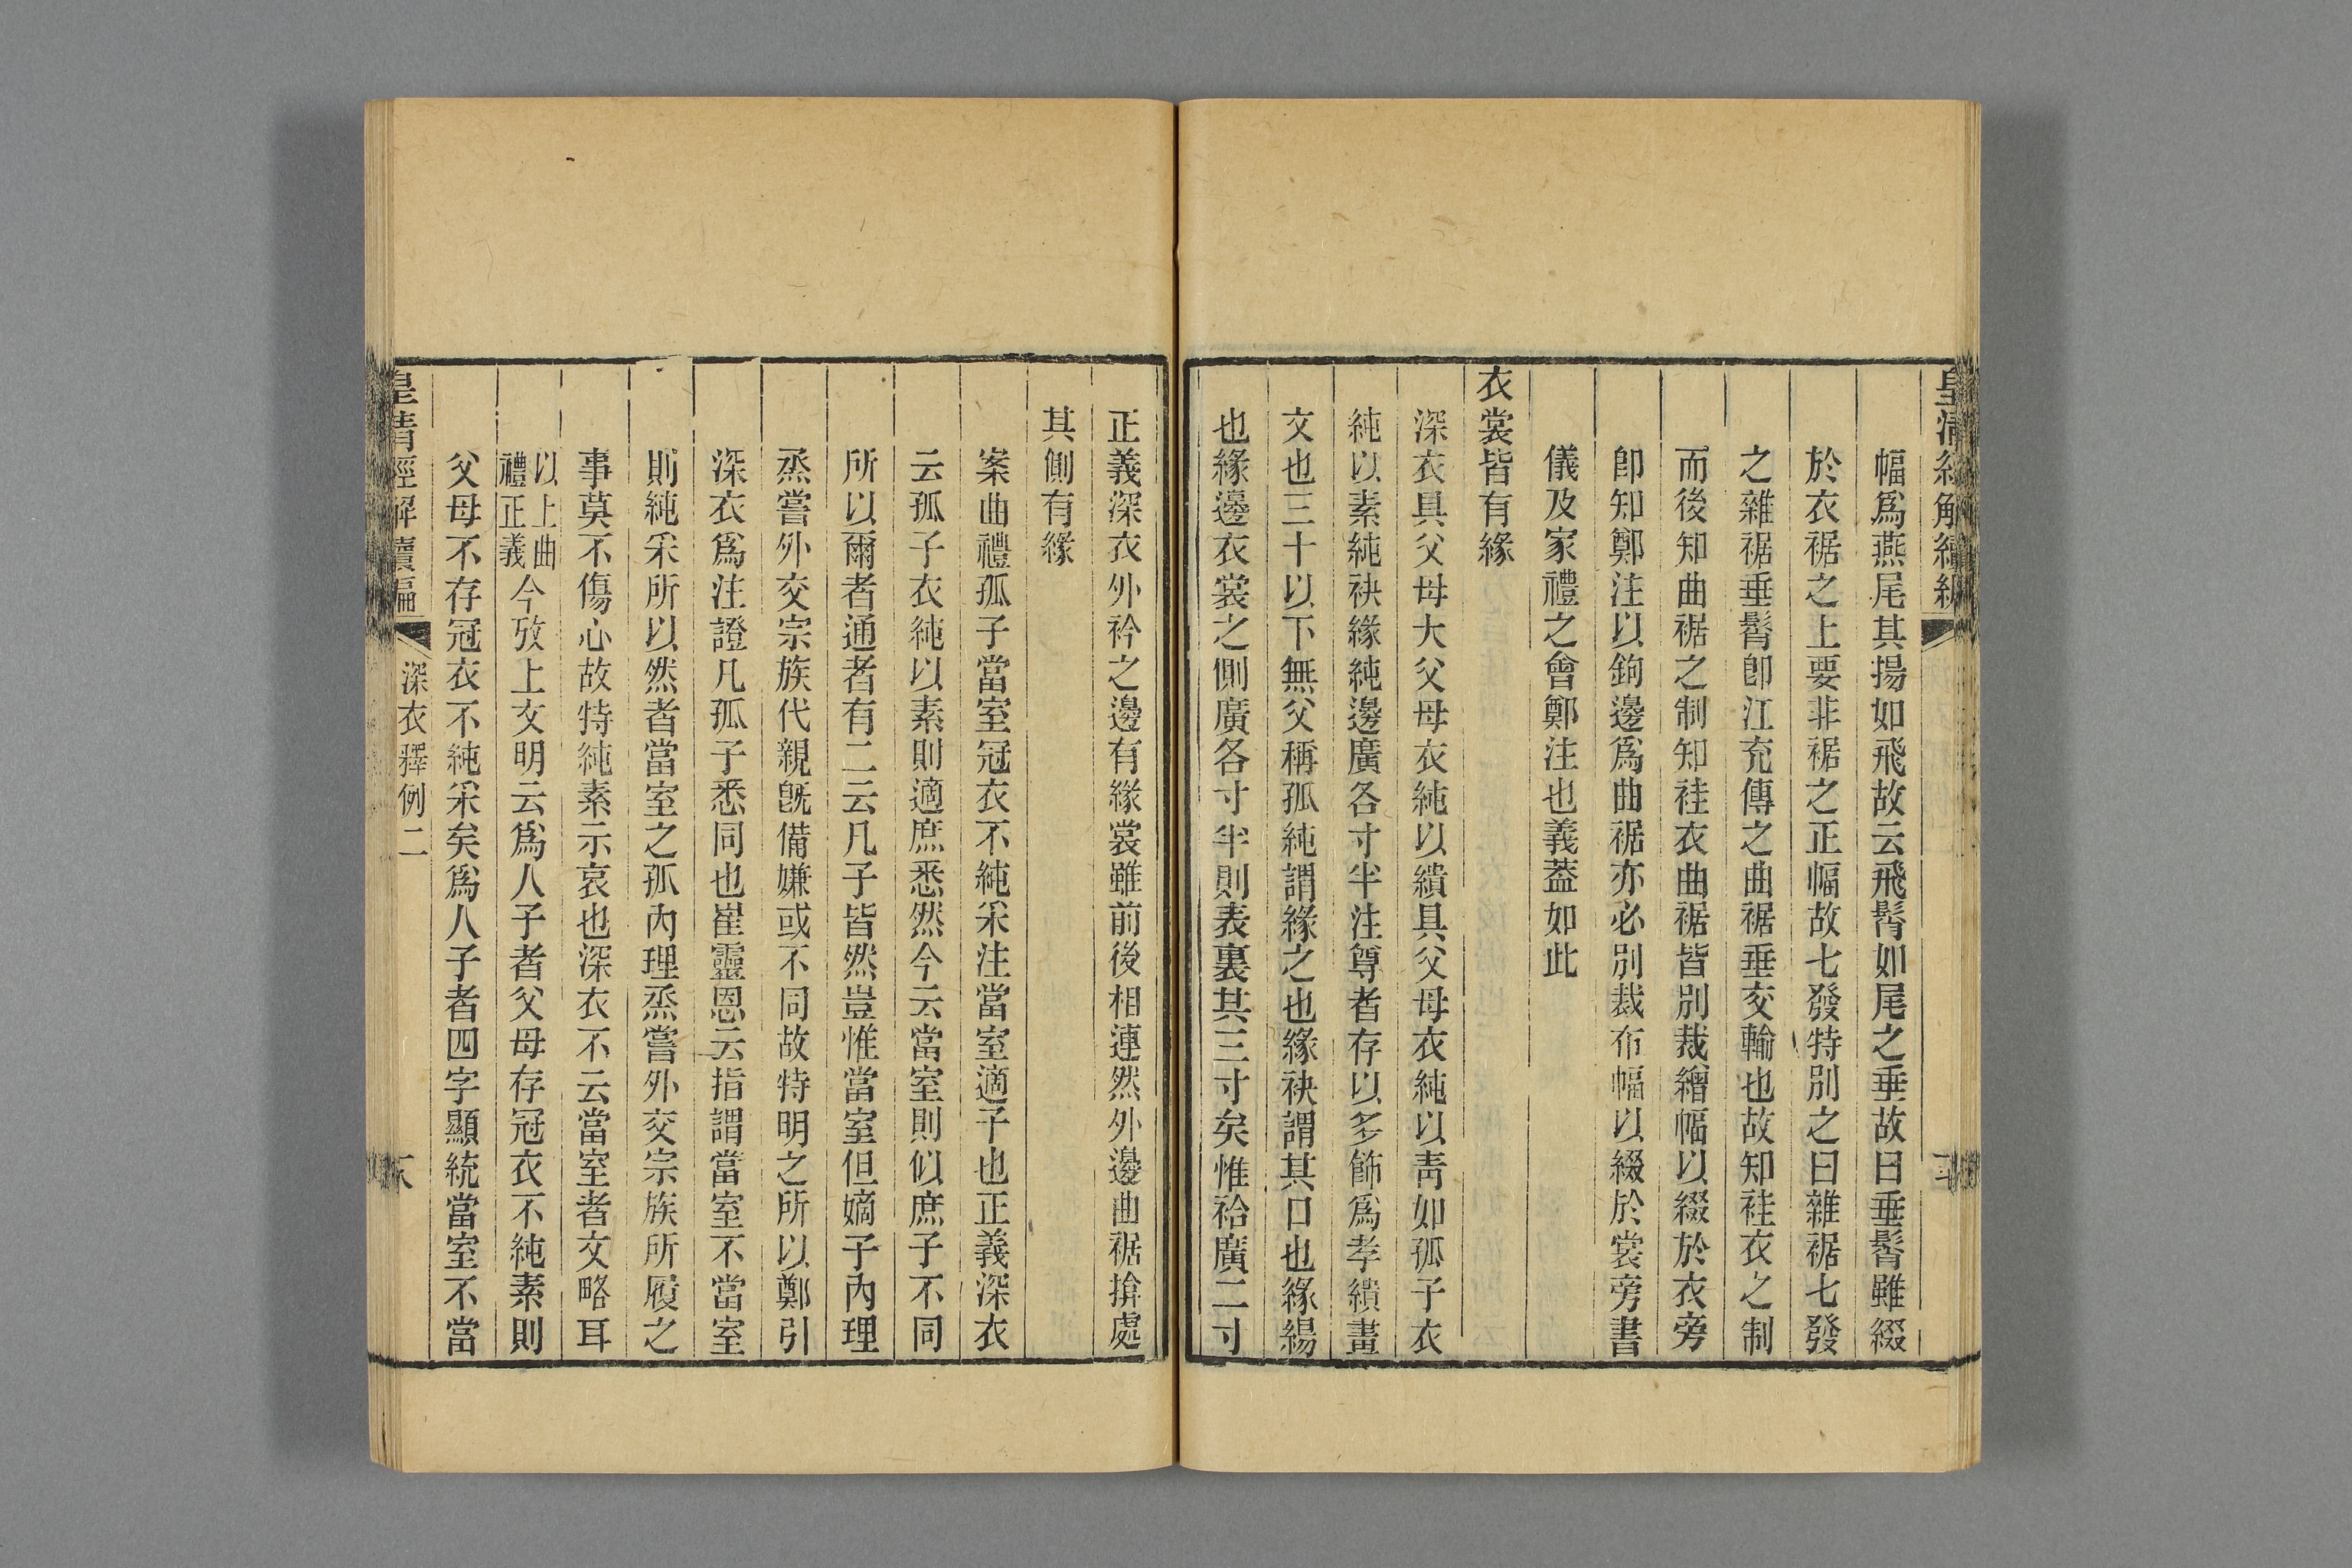 皇清經解續編
幅爲燕尾其揚如飛故云飛髾如尾之垂故曰垂髾雖綴
於衣裾之上要非裾之正幅故七發特別之曰雜裾七發
之雜裾垂髾卽江充傳之曲裾垂交輸也故知袿衣之制
而後知曲裾之制知袿衣曲裾皆別裁繒幅以綴於衣旁
卽知鄭注以鉤邊爲曲裾亦必別裁布幅以綴於裳旁書
儀及家禮之會鄭注也義蓋如此
衣裳皆有緣
深衣具父母大父母衣純以繢具父母衣純以靑如孤子衣
純以素純袂緣純邊廣各寸半注尊者存以多飾爲孝繢畫
文也三十以下無父稱孤純謂緣之也緣袂謂其口也緣緆
也緣邊衣裳之側廣各寸半則表裏共三寸矣惟袷廣二寸
正義深衣外衿之邊有緣裳雖前後相連然外邊曲裾揜處
其側有緣
案曲禮孤子當室冠衣不純采注當室適子也正義深衣
云孤子衣純以素則適庶悉然今云當室則似庶子不同
所以爾者通者有二云凡子皆然豈惟當室但嫡子內理
烝嘗外交宗族代親旣備嫌或不同故特明之所以鄭引
深衣爲注證凡孤子悉同也崔靈恩云指謂當室不當室
則純采所以然者當室之孤內理烝嘗外交宗族所履之
事莫不傷心故特純素示哀也深衣不云當室者文略耳
以上曲禮正義今攷上文明云爲人子者父母存冠衣不純素則
父母不存冠衣不純采矣爲人子者四字顯統當室不當
皇清經解續編
深衣釋例二